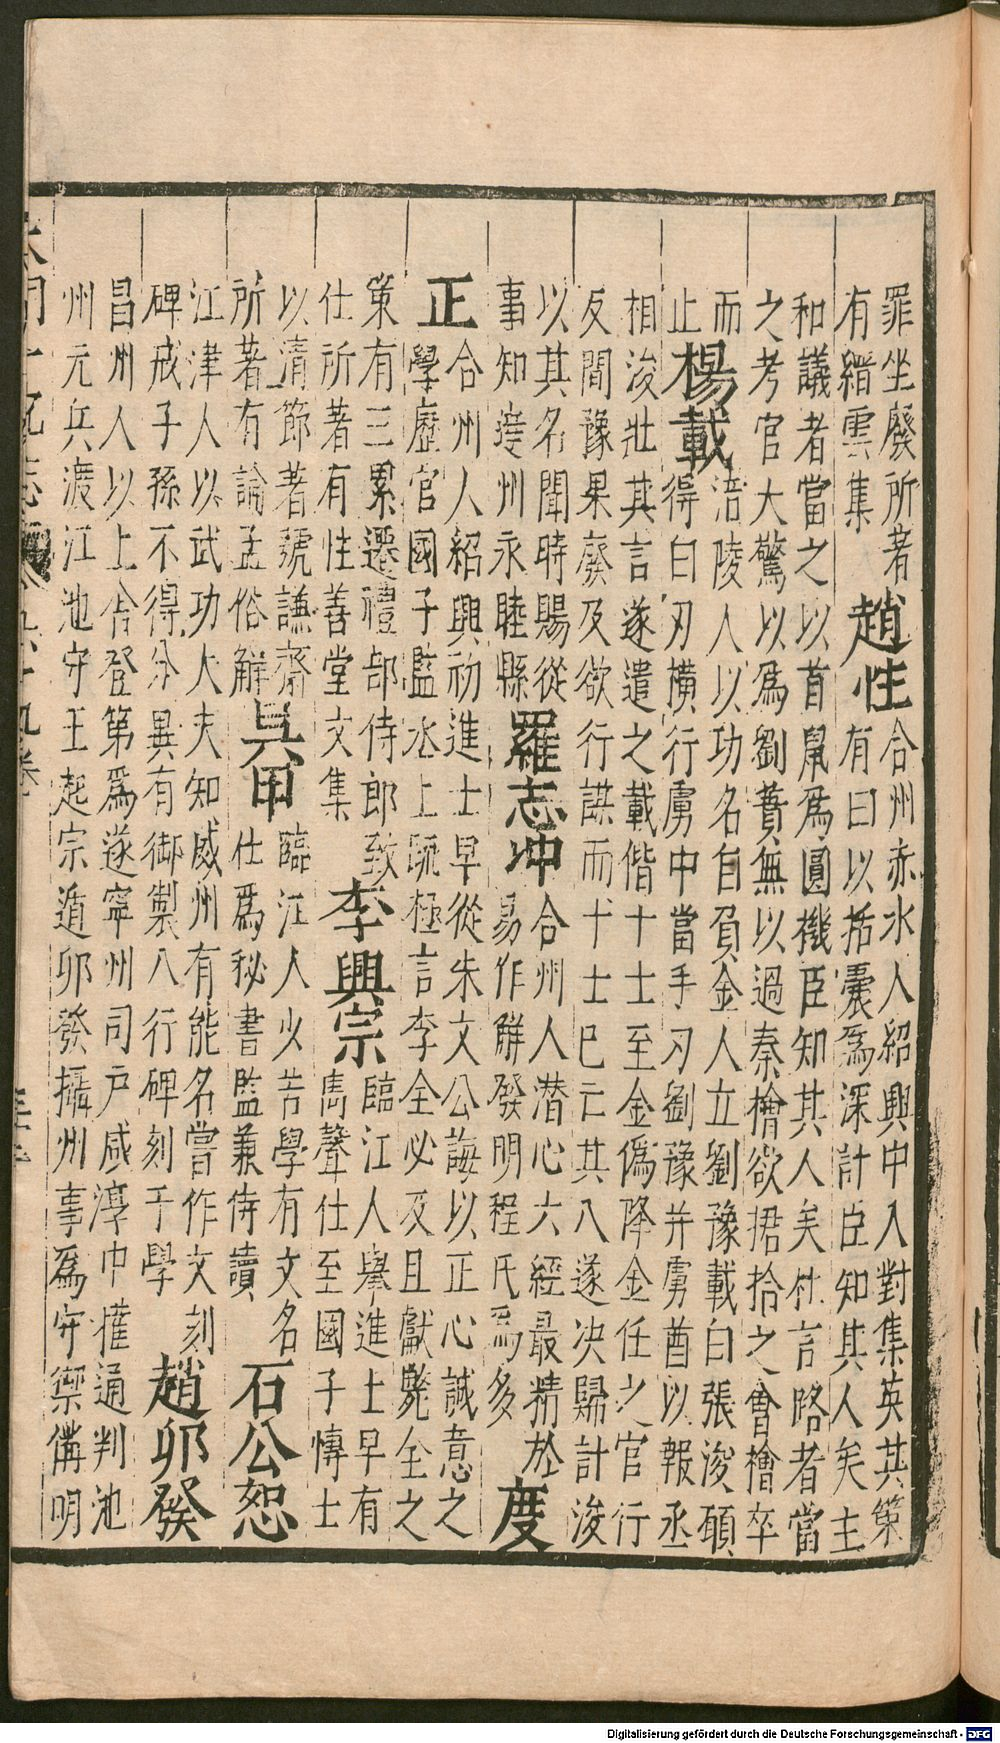 罪坐廢所著
有縉雲集
趙性
合州赤水人紹興中入對集英其策
有曰以括囊爲深計臣知其人矣主
和議者當之以首鼠爲圓機臣知其人矣杜言路者當
之考官大驚以爲劉蕡無以過秦檜欲捃拾之會檜卒
而
止
楊載
涪陵人以功名自負金人立劉豫載白張浚願
得白刃橫行虜中當手刃劉豫并虜酋以報丞
相浚壯其言遂遣之載偕十士至金僞降金任之官行
反間豫果廢及欲行謀而十士巳亡其八遂決歸計浚
以其名聞時賜從
事知達州永睦縣
羅志冲
合州人潜心六經最精於
易作解發明程氏爲多
度
正
合州人紹興初進士早從朱文公誨以正心誠意之
學歷官國子監丞上疏極言李全必反且獻斃全之
策有三累遷禮部侍郎致
仕所著有性善堂文集
李興宗
臨江人舉進士早有
雋聲仕至國子博士
以清節著號謙齋
所著有論孟俗解
吳甲
臨江人少苦學有文名
仕爲秘書監兼侍讀
石公恕
江津人以武功大夫知威州有能名嘗作文刻
碑戒子孫不得分異有御製八行碑刻于學
趙卯發
昌州人以上舍登第爲遂寧州司户咸淳中權通判池
州元兵渡江池守王起宗遁卯發攝州事爲守禦備明
Digitalisierung gefördert durch die Deutsche Forschungsgemeinschaft - DFG